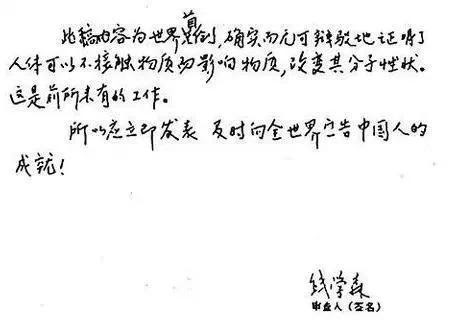 此稿内容为世界首创，确实而无可辩驳地证明了
人体可以不接触物质而影响物质，改变其分子性状。
这是前所未有的工作。
所以应立即发表 及时向全世界宣告中国人的
成就！
钱学森
审查人（签名）